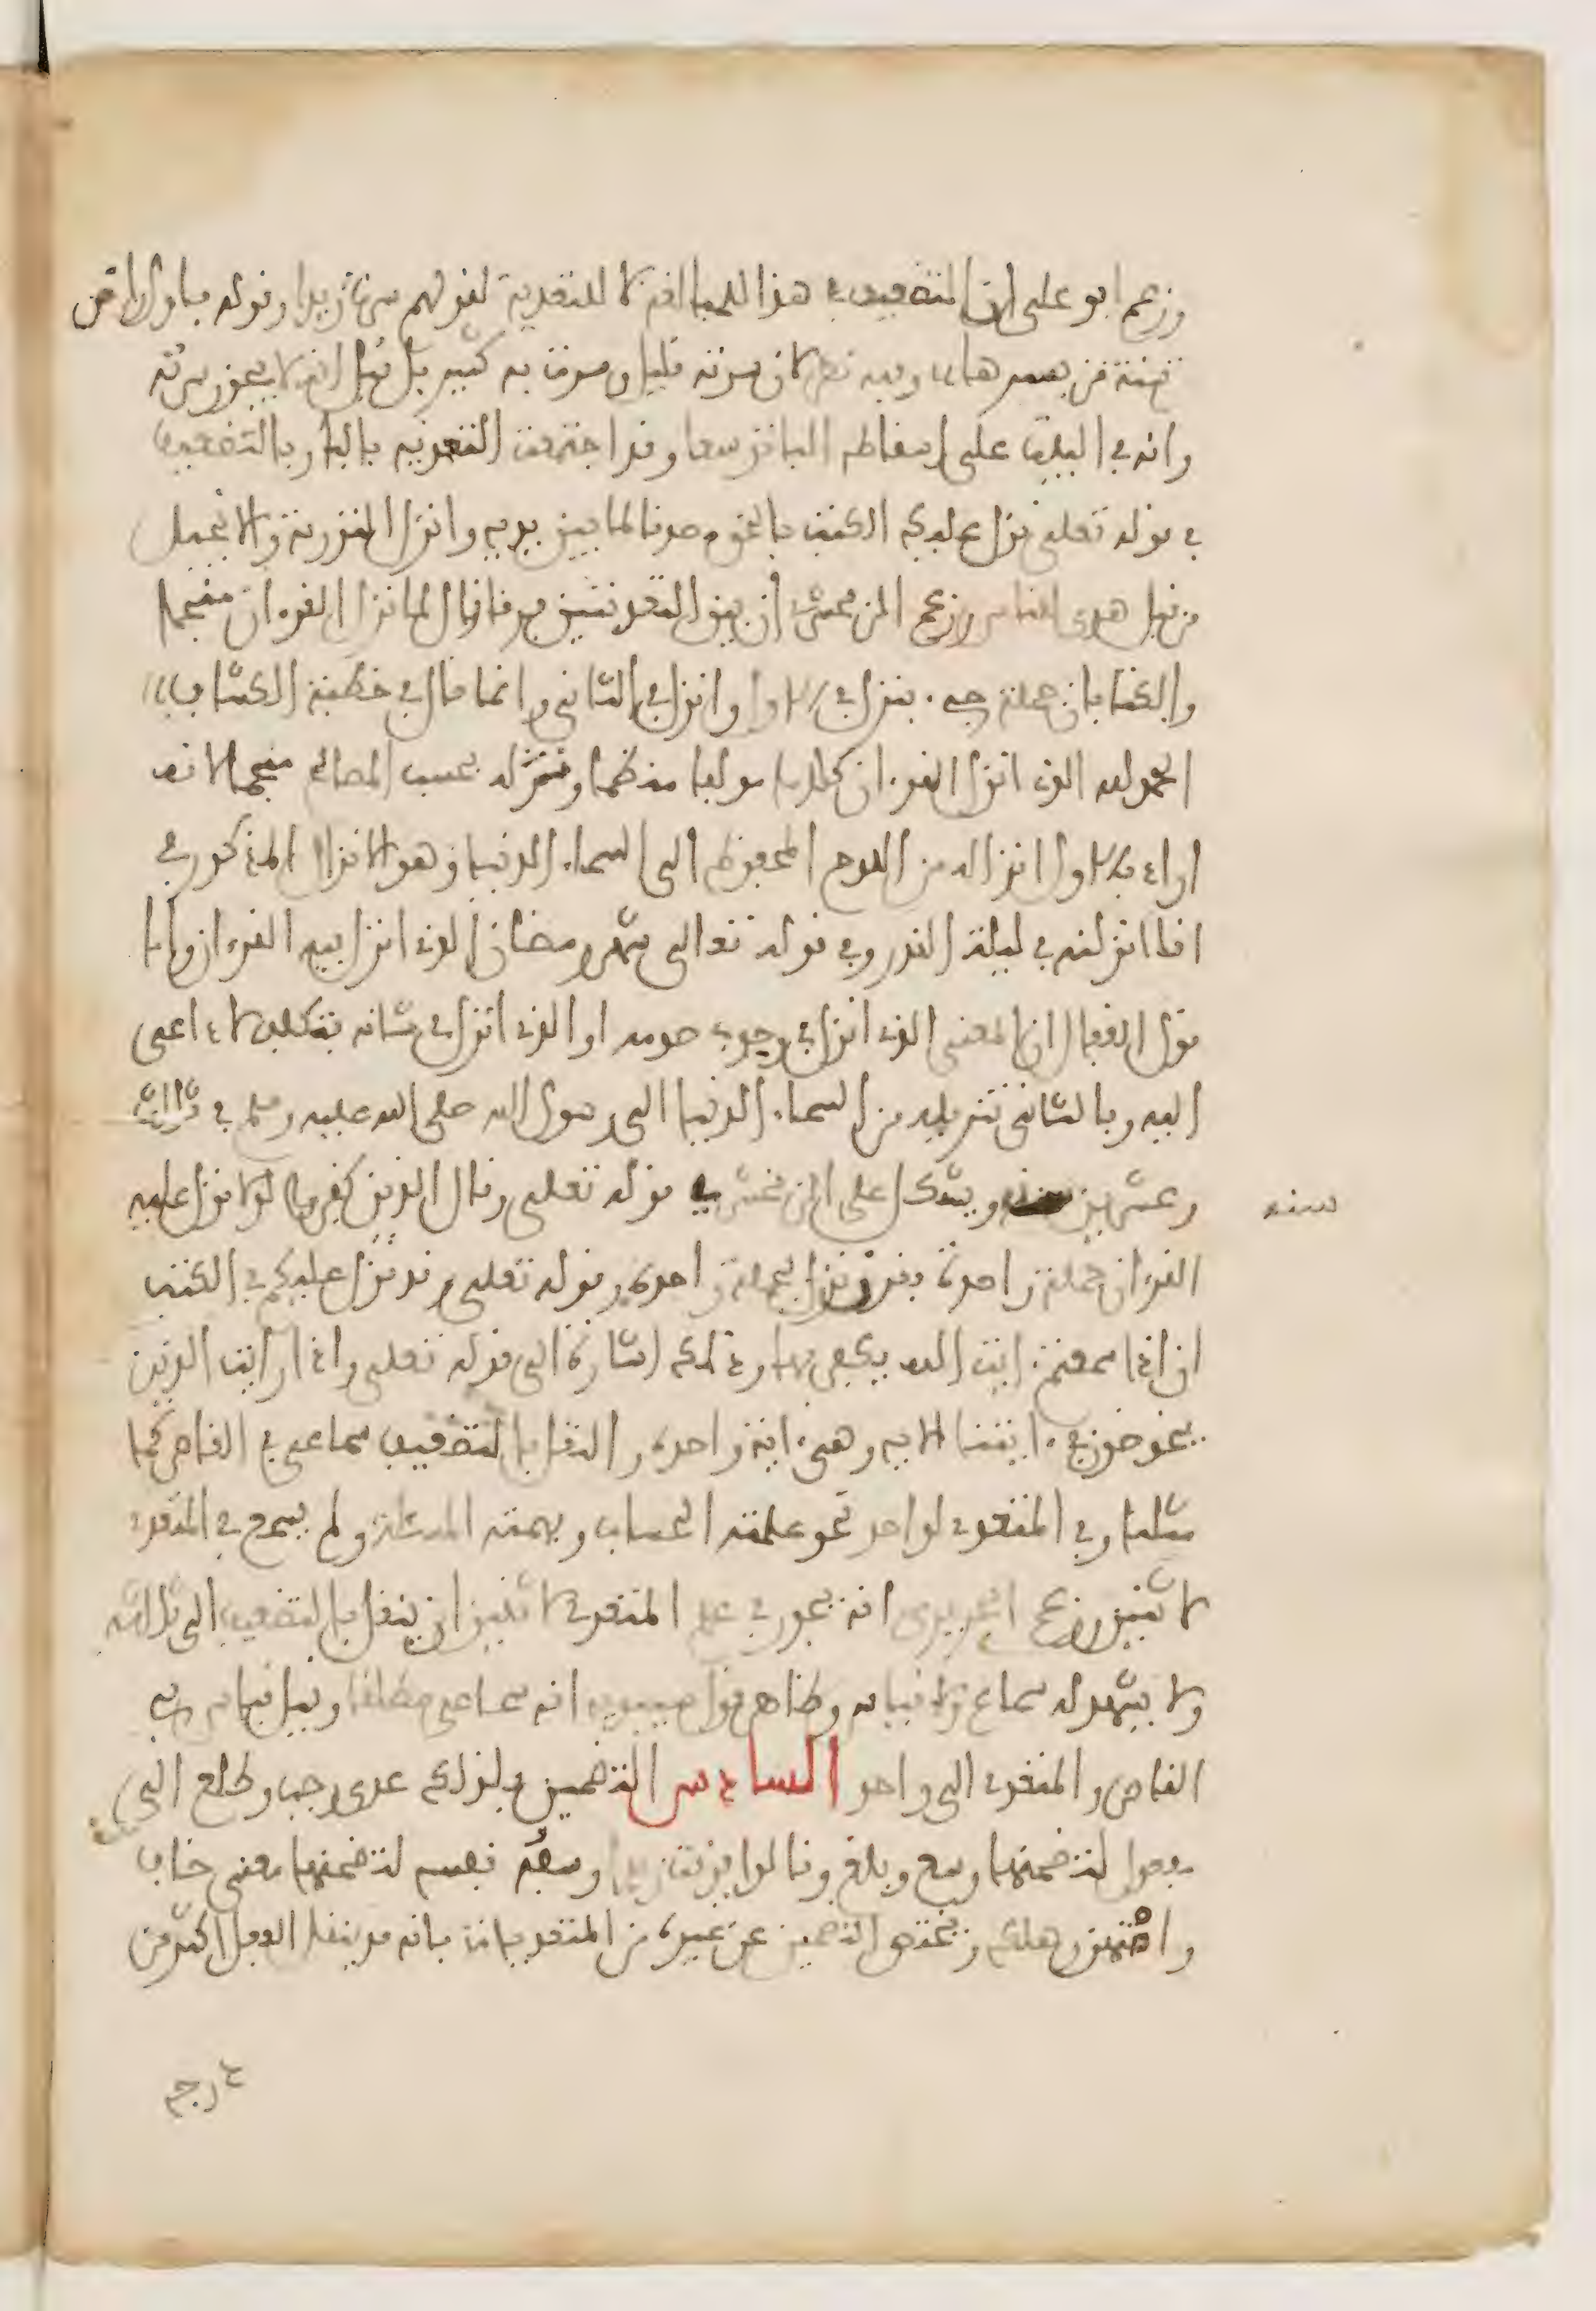 وزعم ابو على ان التضعيف في هذا للمبالغة لا للتعدية لقولهم سرت زيدا وقوله فاول راض
سنة من يسيرها وفيه نظر لان سرته قليل وسرت به كثير بل قيل انه لا يجوز سرته
وانه في البيت على اسقاط الباء توسعا وقد اجتمعت التعدية بالباء وبالتضعيف
في قوله تعلى نزل عليك الكتب بالحق مصدقا لما بين يديه وانزل التورية والانجيل
من قبل هدى للناس وزعم الزمخشري ان بين التعديتين فرقا فقال لما نزل القرءان منجما
والكتابان جملة جيء بنزل في الاول وانزل في الثاني وانما قال في خطبة الكشاف
الحمد لله الذي انزل القرءان كلاما مولفا منظما ونزله بحسب المصالح منجما لانه
اراد بالاول انزاله من اللوح المحفوظ الى السماء الدنيا وهو الانزال المذكور في
انا انزلنه في ليلة القدر وفي قوله تعالى شهر رمضان الذي انزل فيه القرءان واما
قول القفال ان المعنى الذي انزل في وجوب صومه او الذي انزل في شانه فتكلف لا داعي
اليه وبالثاني تنزيله من السماء الدنيا الى رسول الله صلى الله عليه وسلم في ثلاث
وعشرين سنة ويشكل على الزمخشري قوله تعلى وقال الذين كفروا لولا نزل عليه
سنه
القرءان جملة واحدة فقرن نزل بجملة واحدة وقوله تعلى وقد نزل عليكم في الكتب
ان اذا سمعتم ءايت الله يكفر بها وذلك اشارة الى قوله تعلى واذا رايت الذين
يخوضون في ءايتنا الايه وهي ءاية واحدة والنقل بالتضعيف سماعي في القاصر كما
مثلنا وفي المتعدي لواحد نحو علمته الحساب وفهمته المسئلة ولم يسمع في المتعدي
لاثنين وزعم الحريري انه يجوز في علم المتعدي لاثنين ان ينقل بالتضعيف الى ثلاثة
ولا يشهد له سماع ولا قياس وظاهر قول سيبويه انه سماعي مطلقا وقيل قياس في
القاصر والمتعدي الى واحد السادس التضمين فلذلك عدي رحب وطلع الى
مفعول لتضمنهما وسع وبلغ وقالوا فرقت زيدا وسفه نفسه لتضمنهما معنى خاف
وامتهن واهلك ويختص التضمين عن غيره من المتعديات بانه قد ينقل الفعل اكثر من
درجه